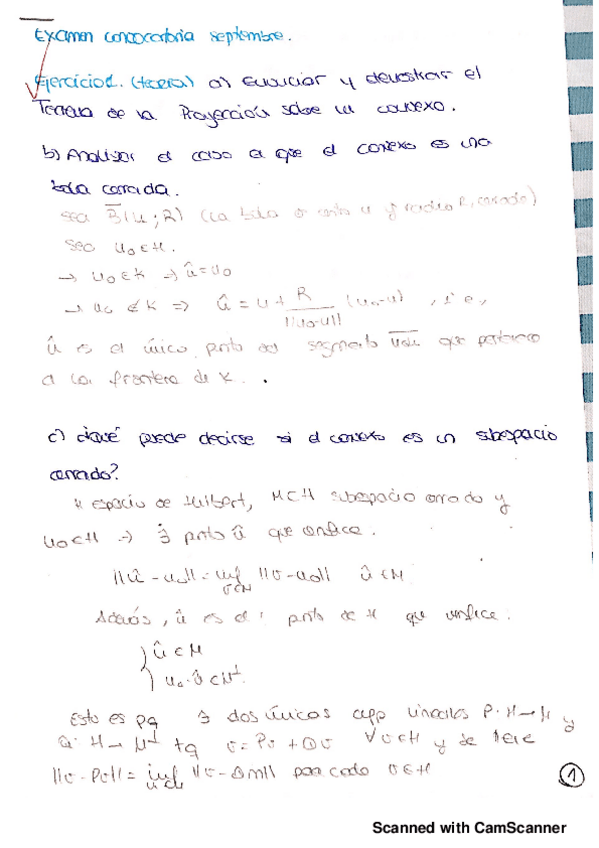 Examen convocatoria septiembre.
Ejercicio 1. (teoría) a) Enunciar y demostrar el
Teorema de la Proyección sobre un convexo.
b) Analizar el caso en que el convexo es una
bola cerrada.
sea B̅(u; R) (la bola de centro u y radio R, cerrada)
sea u₀ ∈ H.
→ u₀ ∈ K → û = u₀
→ u₀ ∉ K ⇒ û = u + R/||u₀-u|| (u₀-u) , i.e.,
û es el único punto del segmento u̅u̅₀ que pertenece
a la frontera de K.
c) ¿Qué puede decirse si el convexo es un subespacio
cerrado?
H espacio de Hilbert, M⊂H subespacio cerrado y
u₀∈H → ∃ punto û que verifica.
||û - u₀|| = inf ||v - u₀|| û ∈ M
v∈M
Además, û es el punto de H que verifica:
{ û ∈ M
u₀ - û ∈ M⊥
Esto es pq ∃ dos únicas app lineales P: H → M y
Q: H → M⊥ tq v = Pv + Qv ∀v∈H y se tiene
||v - Pv|| = inf ||v - m|| para cada v∈H
1
Scanned with CamScanner